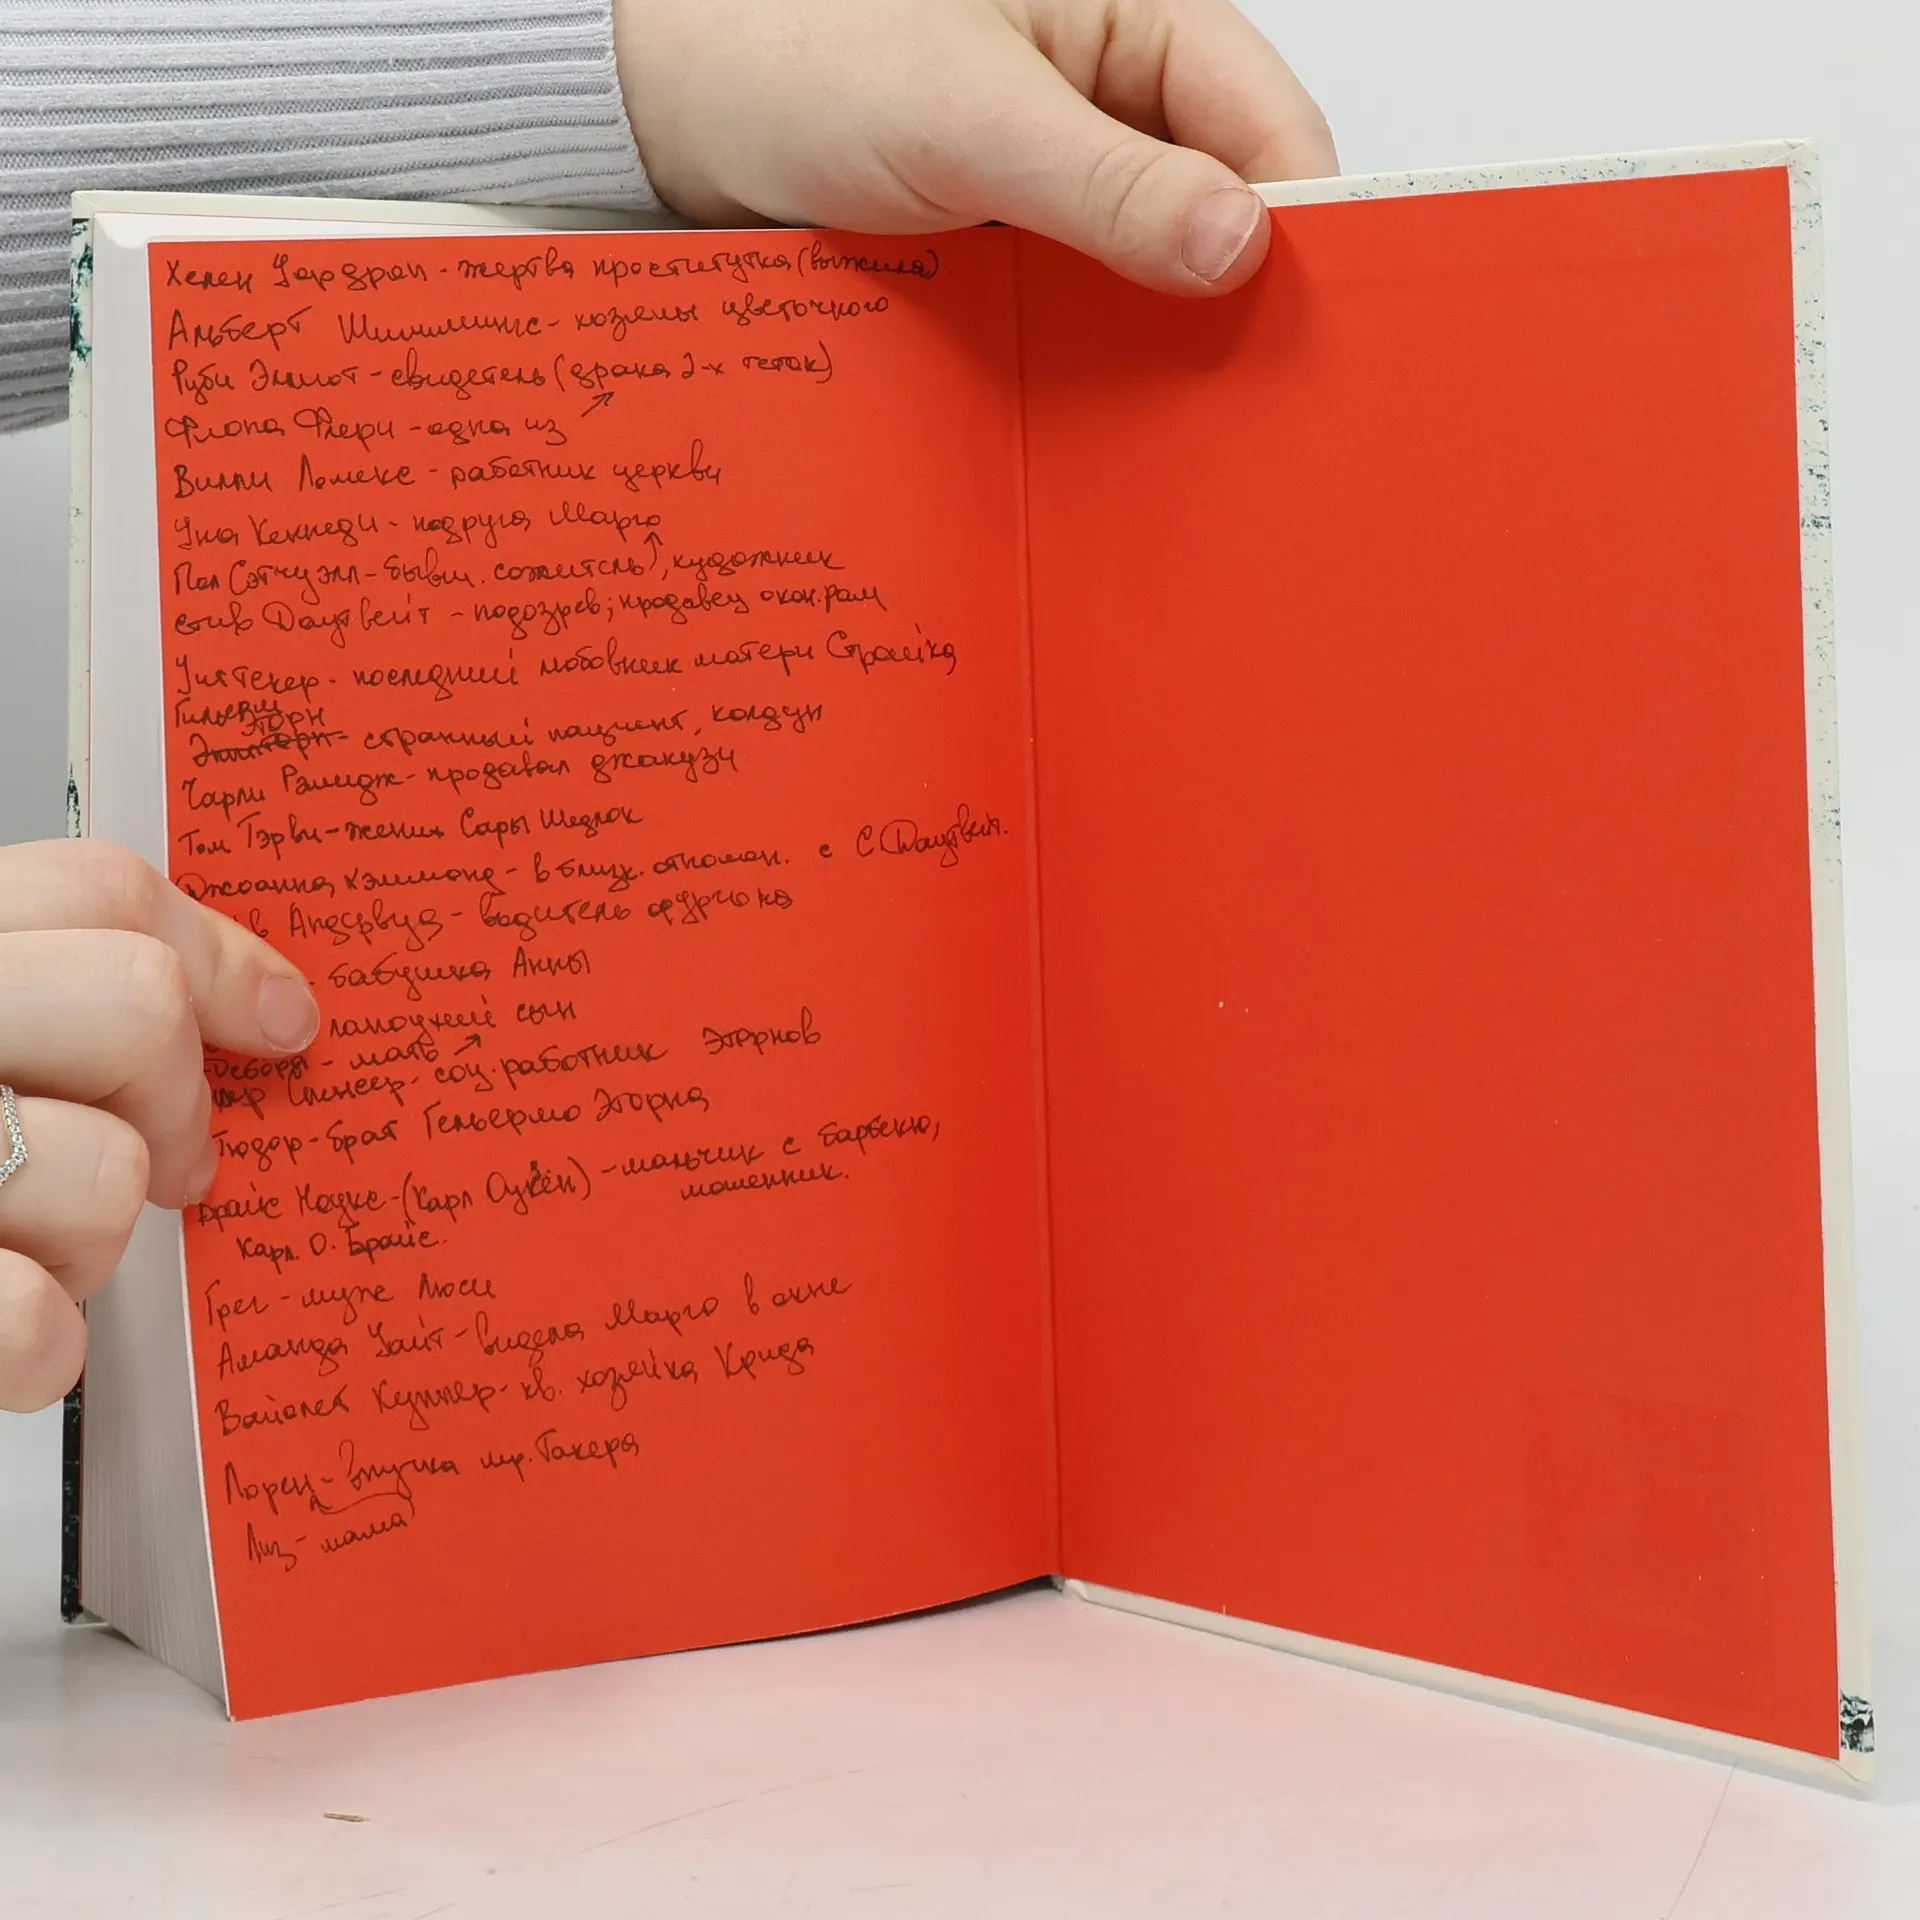 Хелен Уордроп - жертва проститутка (выжила)
Альберт Шиммингс - хозяины цветочного
Руби Эллиот - свидетель (драка 2-х теток)
Флора Флери - одна из ↗
Вилли Ломекс - работник церкви
Уна Кеннеди - подруга Марго
Пол Сэтчуэлл - бывш. сожитель↑, художник
Стив Даутвейт - подозрев; продавец окон.рам
Уиттекер - последний любовник матери Страйка
Гильерм
Эторн
- странный пациент, колдун
Чарли Рэмидж - продавал джакузи
Том Тэрви - жених Сары Шедлок
Джоанна Хэммонд - в близк. отношен. с С. Даутвейт.
в Андервуд - водитель фургона
- бабушка Анны
младший сын
Дебора - мать ↗
Спенсер - соц. работник Эторнов
Тюдор - брат Гильермо Эторна
Брайс Ноукс - (Карл Оукен) - мальчик с барбекю,
мошенник.
Карл. О. Брайс.
Грег - муж Люси
Аманда Уайт - видела Марго в окне
Вайолет Куппер - кв. хозяйка Крида
Лорен - внучка мр. Такера
Лиз - мама